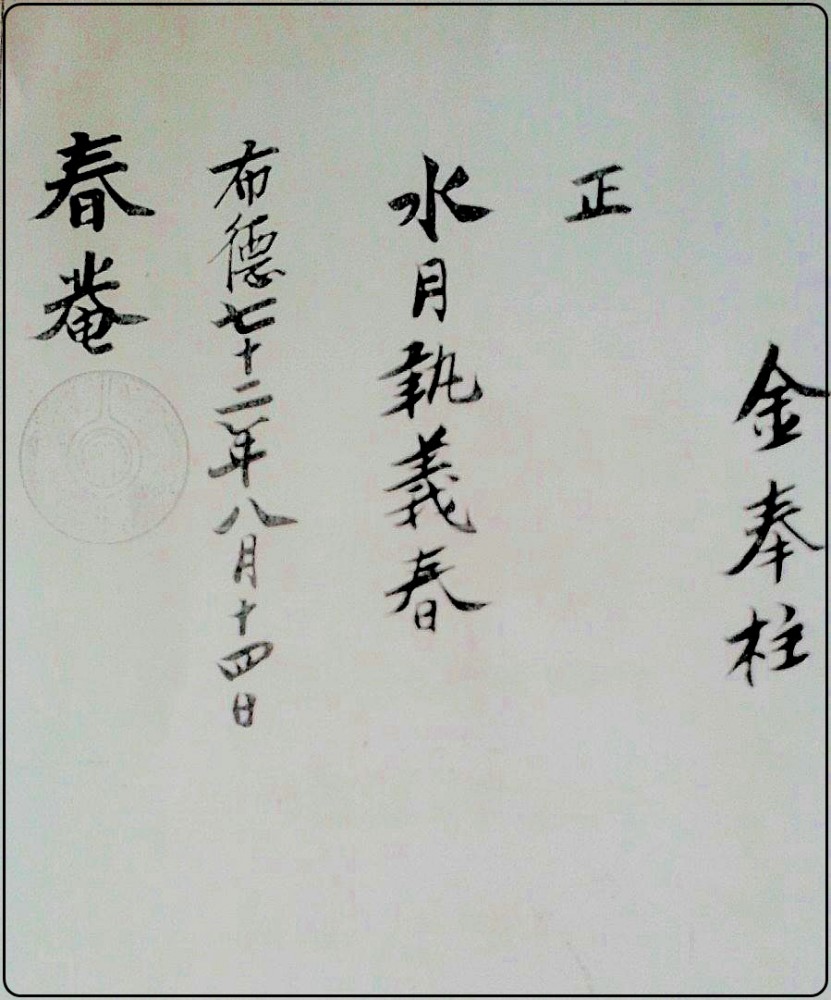 金奉柱
正
水月執義春
布德七十二年八月十四日
春菴